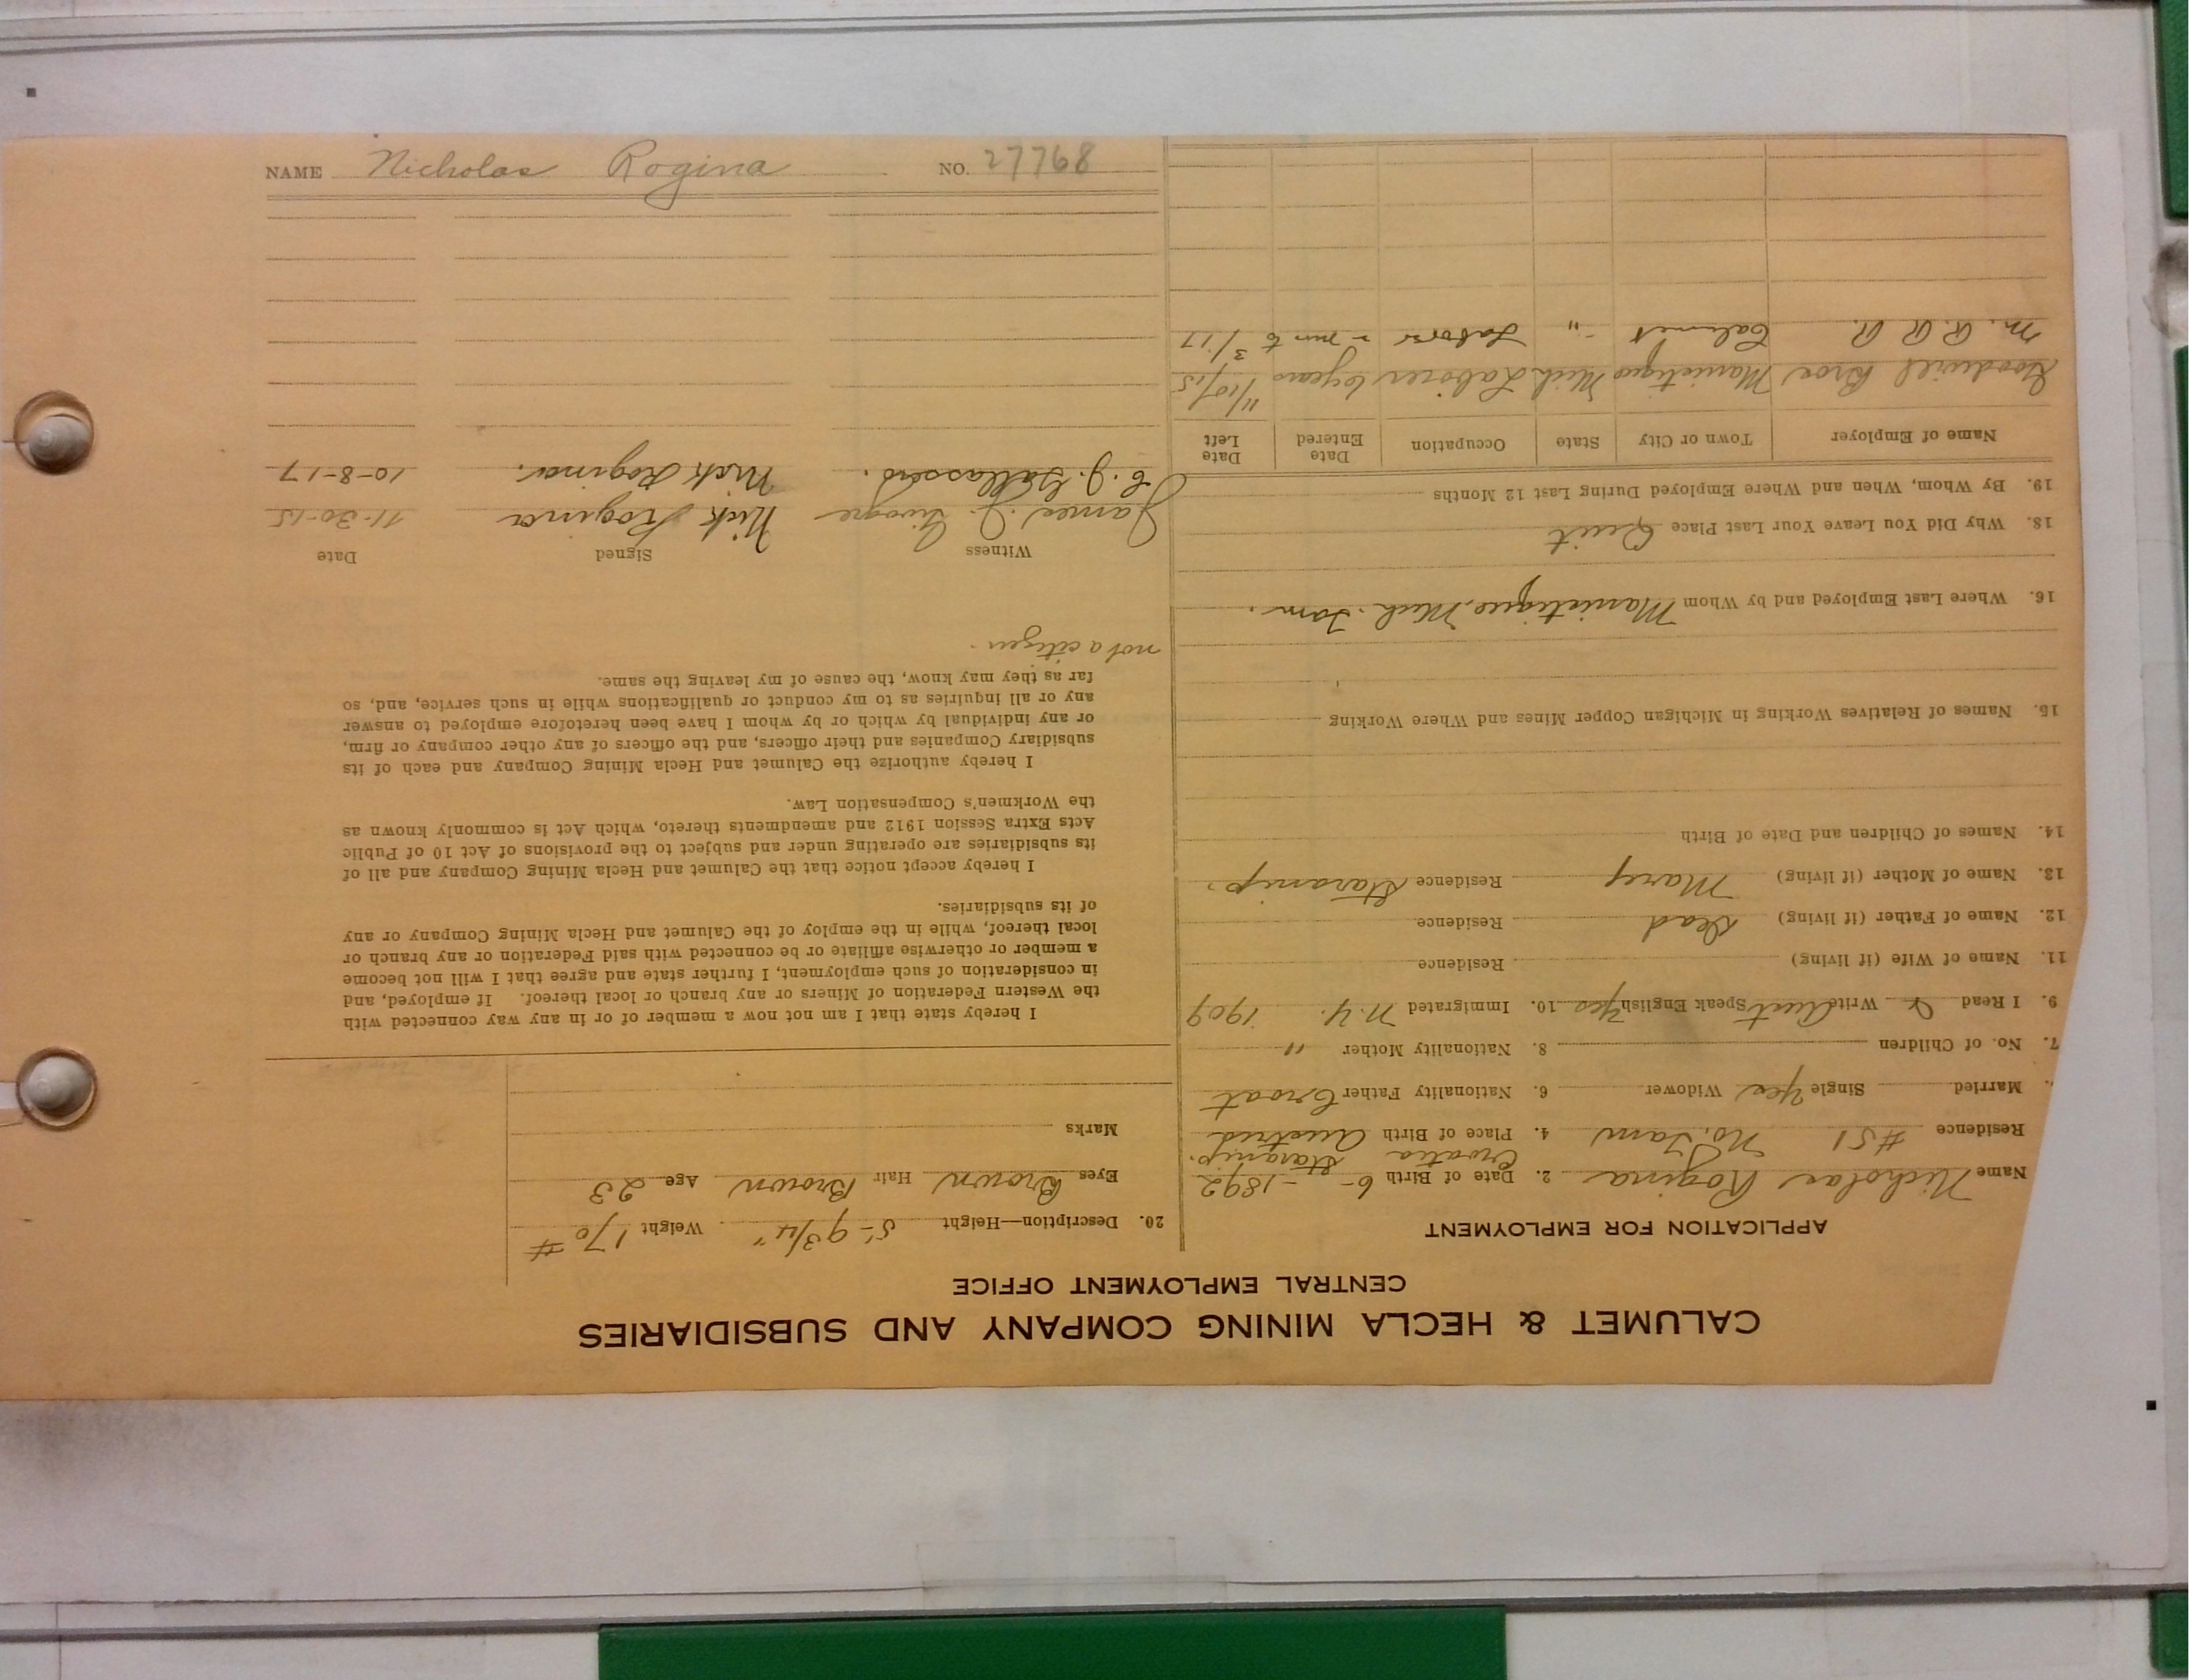 CALUMET & HECLA MINING COMPANY AND SUBSIDIARIES
CENTRAL EMPLOYMENT OFFICE
APPLICATION FOR EMPLOYMENT
Name Nicholas Rogina 2. Date of Birth 6- -1892
Croatia
Residence #51 No. Tam 4. Place of Birth Austria
Married Single Yes Widower 6. Nationality Father Croat
7. No. of Children 8. Nationality Mother "
9. I Read & Write Aust Speak English Yes 10. Immigrated N.Y. 1909
11. Name of Wife (if living) Residence
12. Name of Father (if living) Dead Residence
13. Name of Mother (if living) Mary Residence
14. Names of Children and Date of Birth
15. Names of Relatives Working in Michigan Copper Mines and Where Working
16. Where Last Employed and by Whom Manistique, Mich.
18. Why Did You Leave Your Last Place Quit
19. By Whom, When and Where Employed During Last 12 Months
Name of Employer Town or City State Occupation Date Entered Date Left
Goodwill Bros Manistique Mich Laborer 6 years 11/10/15
M. R. R. R. Calumet " Laborer 3/17
20. Description—Height 5'-9 3/4" Weight 170#
Eyes Brown Hair Brown Age 23
Marks
I hereby state that I am not now a member of or in any way connected with
the Western Federation of Miners or any branch or local thereof. If employed, and
in consideration of such employment, I further state and agree that I will not become
a member or otherwise affiliate or be connected with said Federation or any branch or
local thereof, while in the employ of the Calumet and Hecla Mining Company or any
of its subsidiaries.
I hereby accept notice that the Calumet and Hecla Mining Company and all of
its subsidiaries are operating under and subject to the provisions of Act 10 of Public
Acts Extra Session 1912 and amendments thereto, which Act is commonly known as
the Workmen's Compensation Law.
I hereby authorize the Calumet and Hecla Mining Company and each of its
subsidiary Companies and their officers, and the officers of any other company or firm,
or any individual by which or by whom I have been heretofore employed to answer
any or all inquiries as to my conduct or qualifications while in such service, and, so
far as they may know, the cause of my leaving the same.
not a citizen.
Witness Signed Date
James J. Nick Rogina 11-30-15
Nick Rogina. 10-8-17
NAME Nicholas Rogina NO. 27768